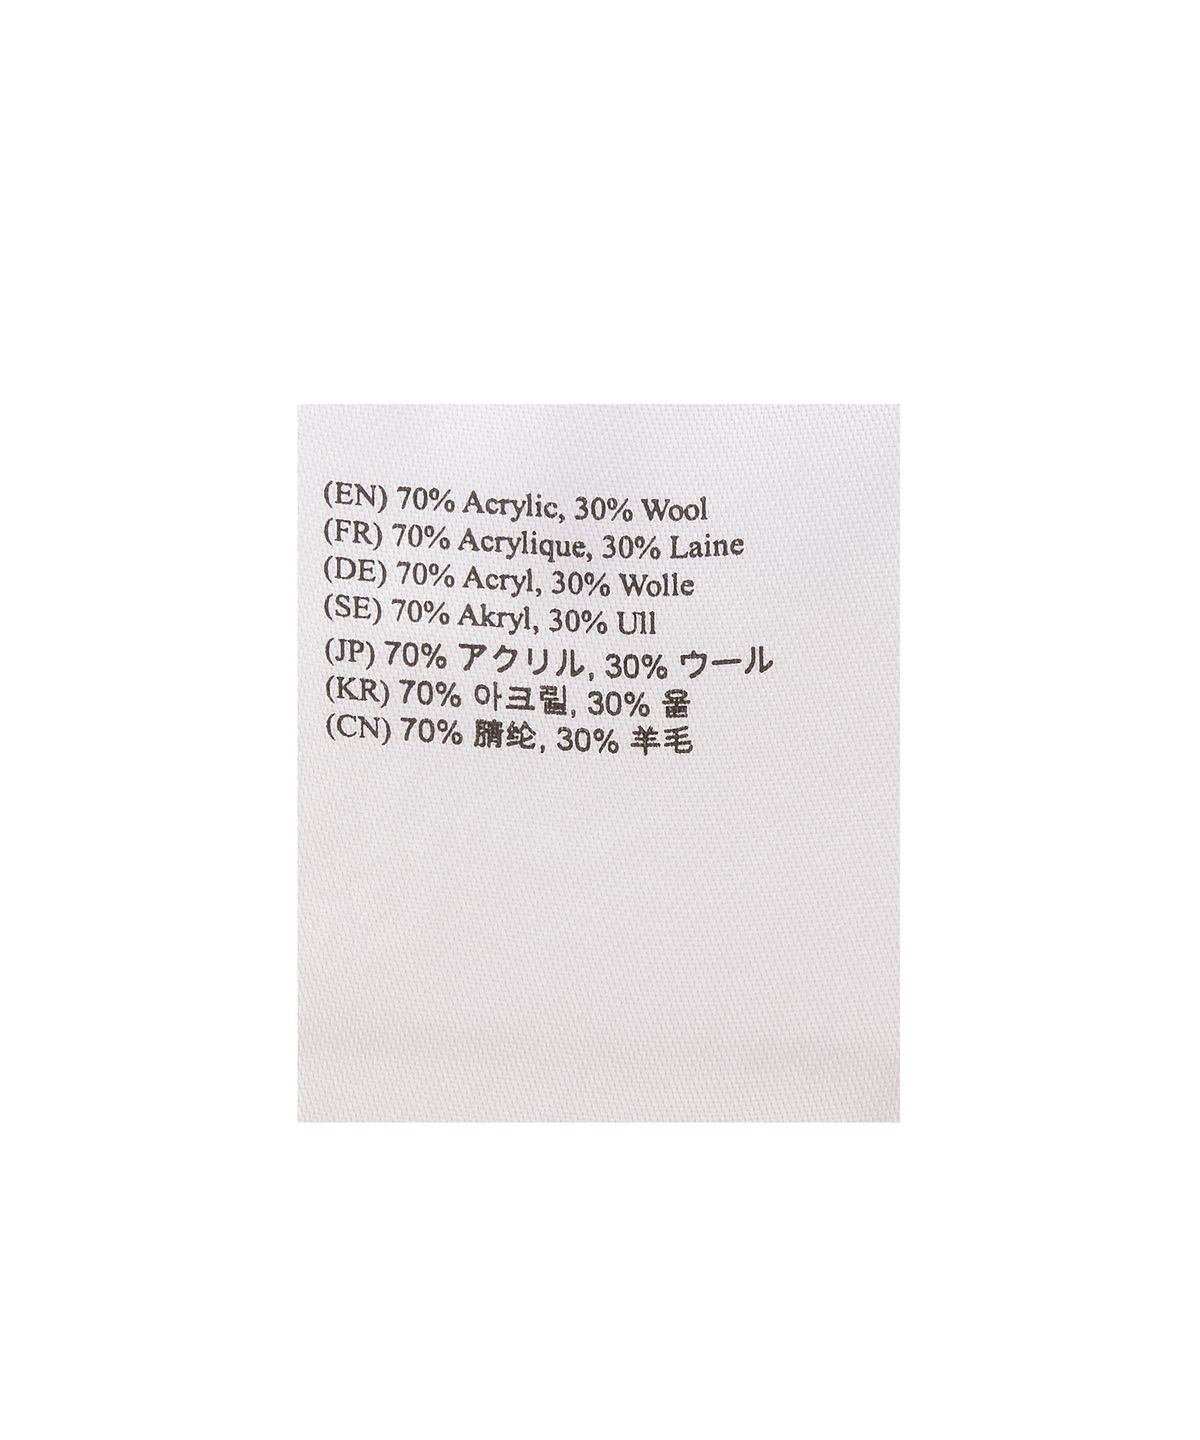 (EN) 70% Acrylic, 30% Wool
(FR) 70% Acrylique, 30% Laine
(DE) 70% Acryl, 30% Wolle
(SE) 70% Akryl, 30% Ull
(JP) 70% アクリル, 30% ウール
(KR) 70% 아크릴, 30% 울
(CN) 70% 腈纶, 30% 羊毛